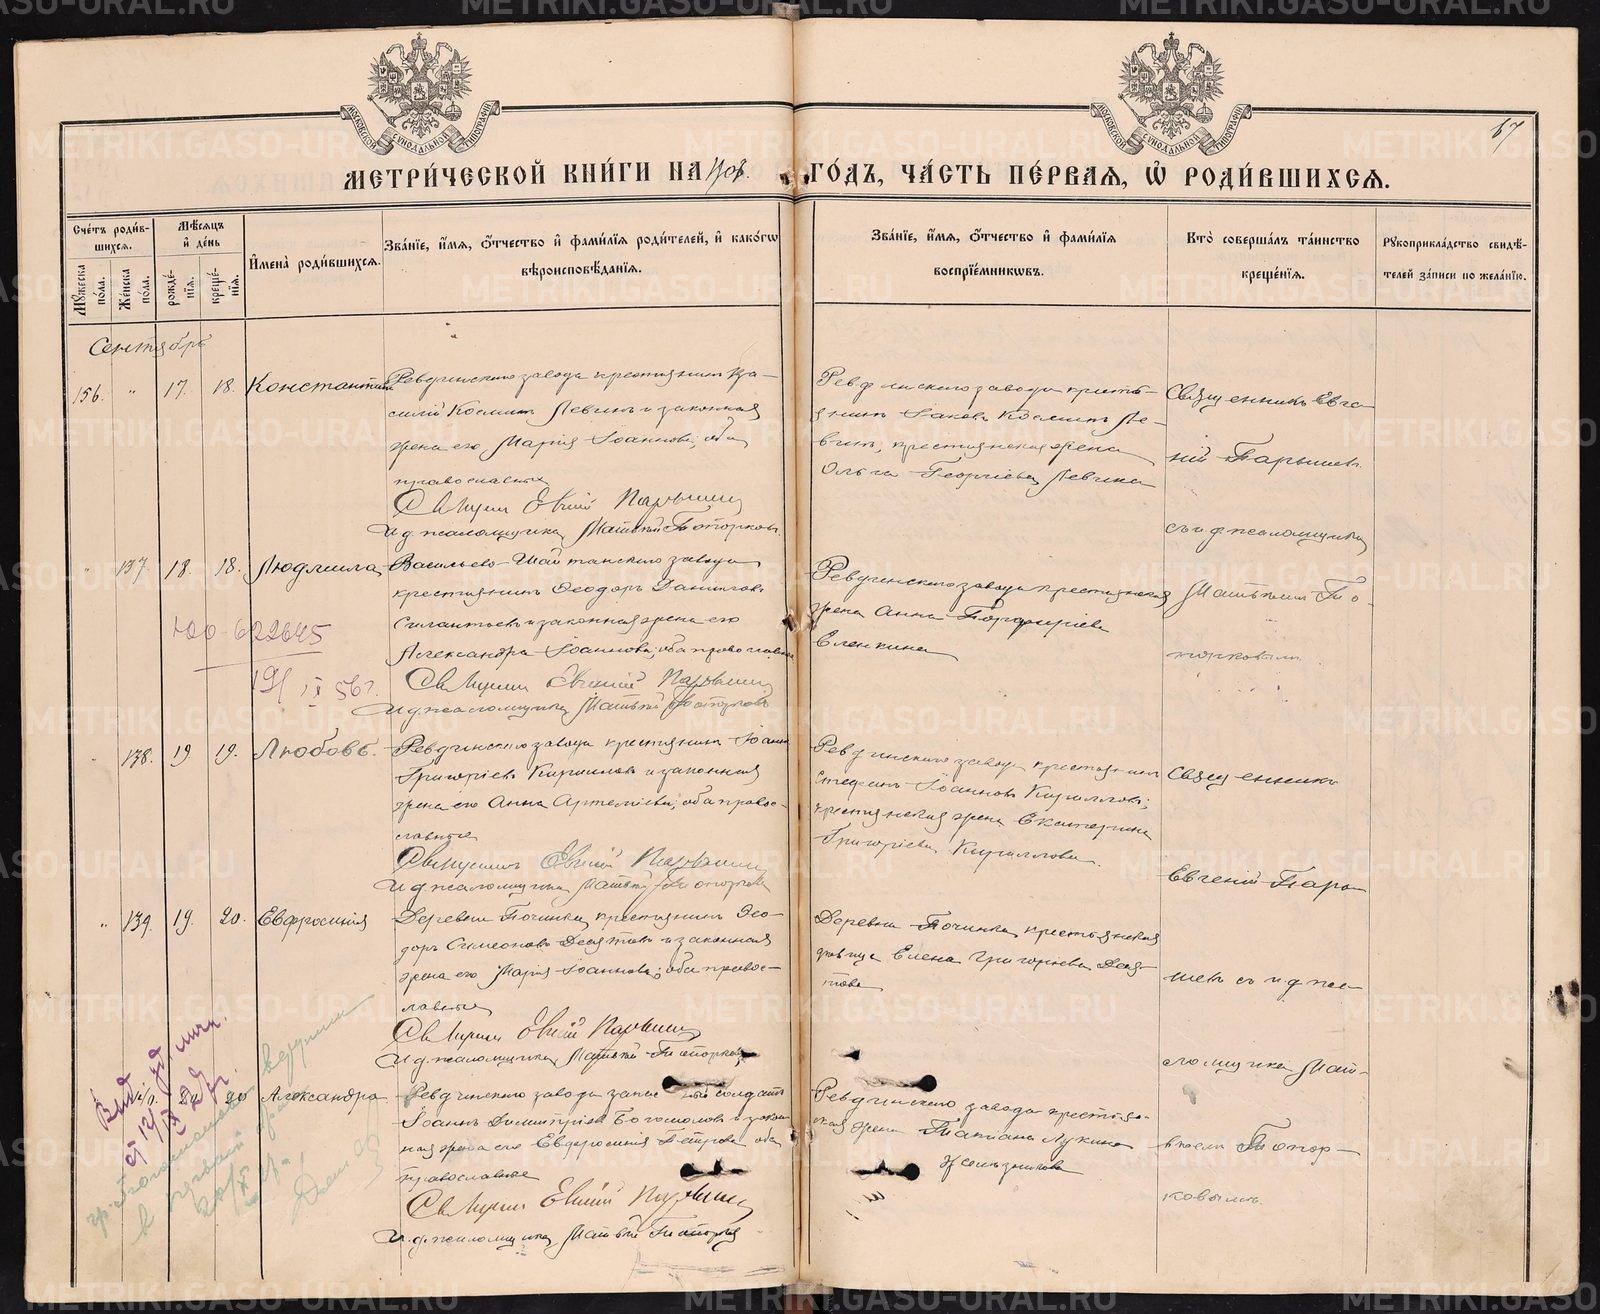 67
МЕТРИ́ЧЕСКОЙ КНИ́ГИ НА 1908. ГО́ДЪ, ЧА́СТЬ ПЕ́РВАЯ, Ѿ РОДИ́ВШИХСЯ.
Сче́тъ роди́в-
шихся.
Мꙋ́жеска по́ла.
Же́нска по́ла.
Мѣ́сяцъ и҆ де́нь
рожде́-
нїя.
креще́-
нїя.
И҆мена̀ роди́вшихся.
Зва́нїе, и҆́мя, ѻ҆́тчество и҆ фами́лїя роди́телей, и҆ како́гѡ
вѣроисповѣ́данїя.
Зва́нїе, и҆́мя, ѻ҆́тчество и҆ фами́лїя
воспрїе́мникѡвъ.
Кто̀ соверша́лъ та́инство
креще́нїя.
Рꙋкоприкла́дство свидѣ́-
телей за́писи по жела́нїю.
Сентябрь
156. " 17. 18. Константинъ
Ревдинскаго завода крестьянинъ Ва-
силій Космин Левинъ и законная
жена его Марія Іоаннова, оба
православные
Священ Евгеній Парышев
И д. псаломщика Матвѣй Топорковъ
Ревдинскаго завода кресть-
янинъ Іаковъ Космин Ле-
винъ, крестьянская жена
Ольга Георгіева Левина
Священникъ Евге-
ній Парышев
съ и д псаломщика
" 137. 18. 18. Людмила
Васильево-Шайтанскаго завода
крестьянинъ Ѳеодоръ Даниловъ
Силантьевъ и законная жена его
Александра Іоаннова, оба православные
Священ Евгеній Парышев
И д псаломщика Матвѣй Топорковъ
Ревдинскаго завода крестьянская
жена Анна Порфиріева
Еленкина
Матвѣем То-
порковым
Юо-622645
19/IX 56г.
" 138. 19 19. Любовь.
Ревдинскаго завода крестьянинъ Іоаннъ
Григоріевъ Кирилловъ и законная
жена его Анна Артеміева, оба правос-
лавные
Священникъ Евгеній Парышев
И д псаломщика Матвѣй Топорковъ
Ревдинскаго завода крестьянинъ
Стефанъ Іоанновъ Кирилловъ;
крестьянская жена Екатерина
Григоріева Кириллова.
Священникъ
Евгеній Пары-
" 139. 19. 20. Евфросинія
Деревни Починка, крестьянинъ Ѳео-
доръ Симеоновъ Десятовъ и законная
жена его Марія Іоаннова; оба правос-
лавные
Священ Евгеній Парышев
И д псаломщика Матвѣй Топорковъ
Деревни Починка, крестьянская
дѣвица Елена Григоріева Деся-
това
шевъ съ и д пса-
ломщика Мат-
20 Александра
Ревдинскаго завода запасный солдатъ
Іоаннъ Димитріевъ Богомоловъ и закон-
ная жена его Евфросинія Петрова, оба
православные
Священ Евгеній Парышев
И. д. псаломщика Матвѣй Топорковъ
Ревдинскаго завода крестьян-
ская жена Татіана Лукина
вѣемъ Топор-
ковымъ.
METRIKI.GASO-URAL.RU